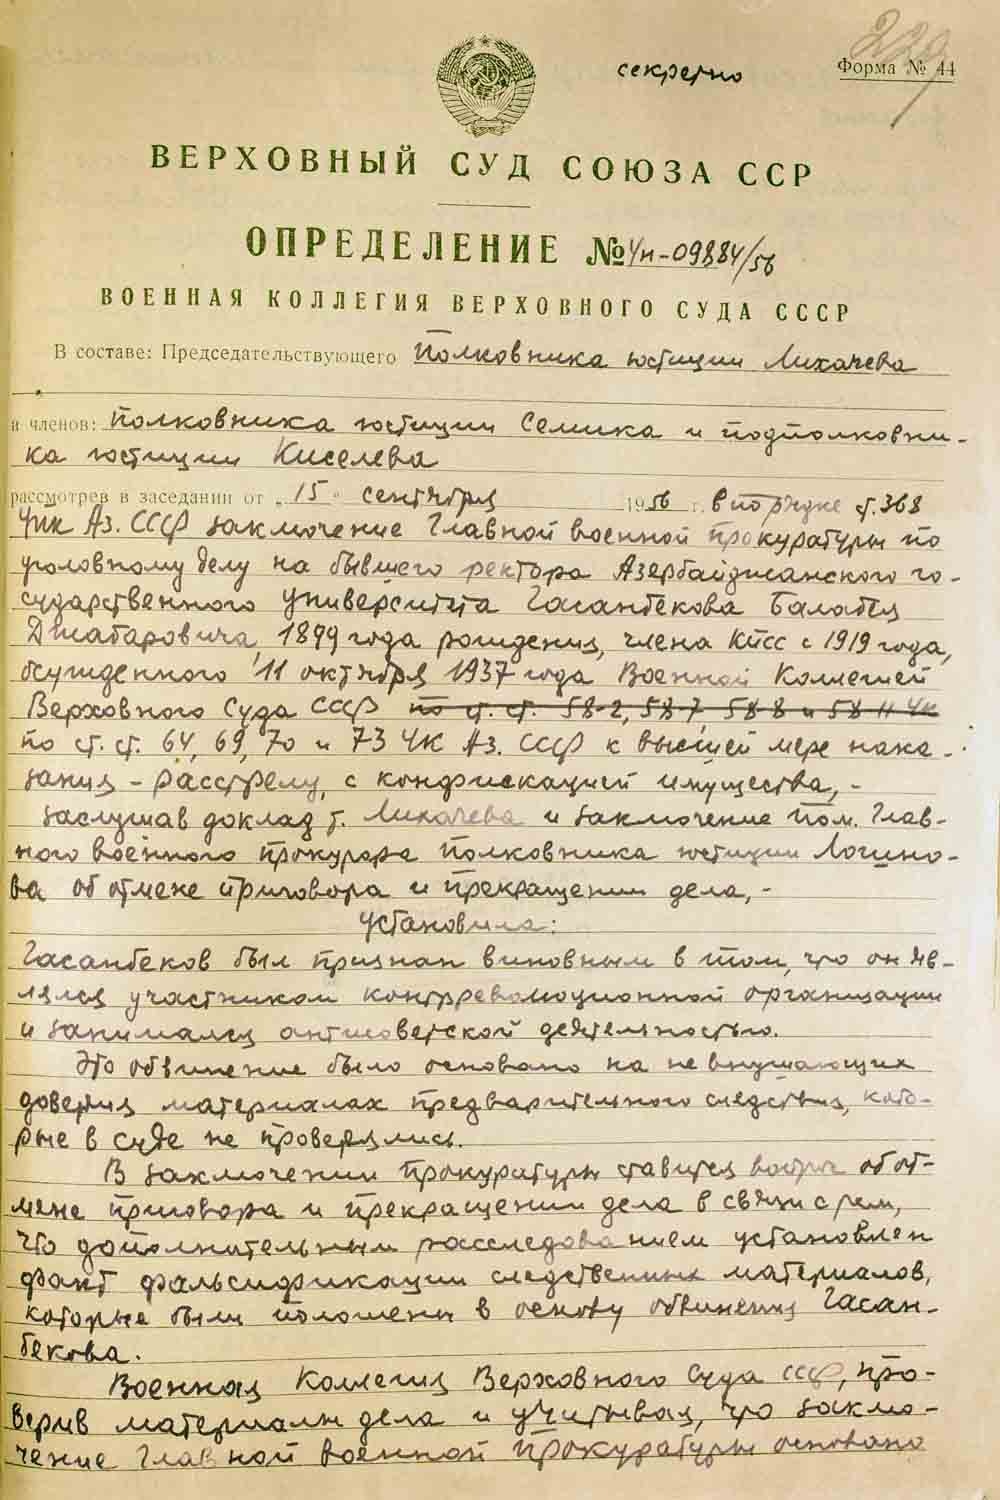 229
секретно
Форма № 44
ВЕРХОВНЫЙ СУД СОЮЗА ССР
ОПРЕДЕЛЕНИЕ № 4н-09884/56
ВОЕННАЯ КОЛЛЕГИЯ ВЕРХОВНОГО СУДА СССР
В составе: Председательствующего Полковника юстиции Лихачева
и членов: полковника юстиции Семика и подполковни-
ка юстиции Киселева
рассмотрев в заседании от „15" сентября 1956 г. в порядке ст. 368
УПК Аз. ССР заключение Главной военной прокуратуры по
уголовному делу на бывшего ректора Азербайджанского го-
сударственного университета Гасанбекова Балабея
Джабаровича, 1899 года рождения, члена КПСС с 1919 года,
осужденного 11 октября 1937 года Военной Коллегией
Верховного Суда СССР по ст. ст. 58-2, 58-7, 58-8 и 58-11 УК
по ст. ст. 64, 69, 70 и 73 УК Аз. ССР к высшей мере нака-
зания - расстрелу, с конфискацией имущества, -
заслушав доклад т. Лихачева и заключение пом. Глав-
ного военного прокурора полковника юстиции Логино-
ва об отмене приговора и прекращении дела, -
установила:
Гасанбеков был признан виновным в том, что он яв-
лялся участником контрреволюционной организации
и занимался антисоветской деятельностью.
Это обвинение было основано на невнушающих
доверия материалах предварительного следствия, кото-
рые в суде не проверялись.
В заключении прокуратуры ставится вопрос об от-
мене приговора и прекращении дела в связи с тем,
что дополнительным расследованием установлен
факт фальсификации следственных материалов,
которые были положены в основу обвинения Гасан-
бекова.
Военная Коллегия Верховного Суда СССР, про-
верив материалы дела и учитывая, что заклю-
чение Главной военной прокуратуры основано